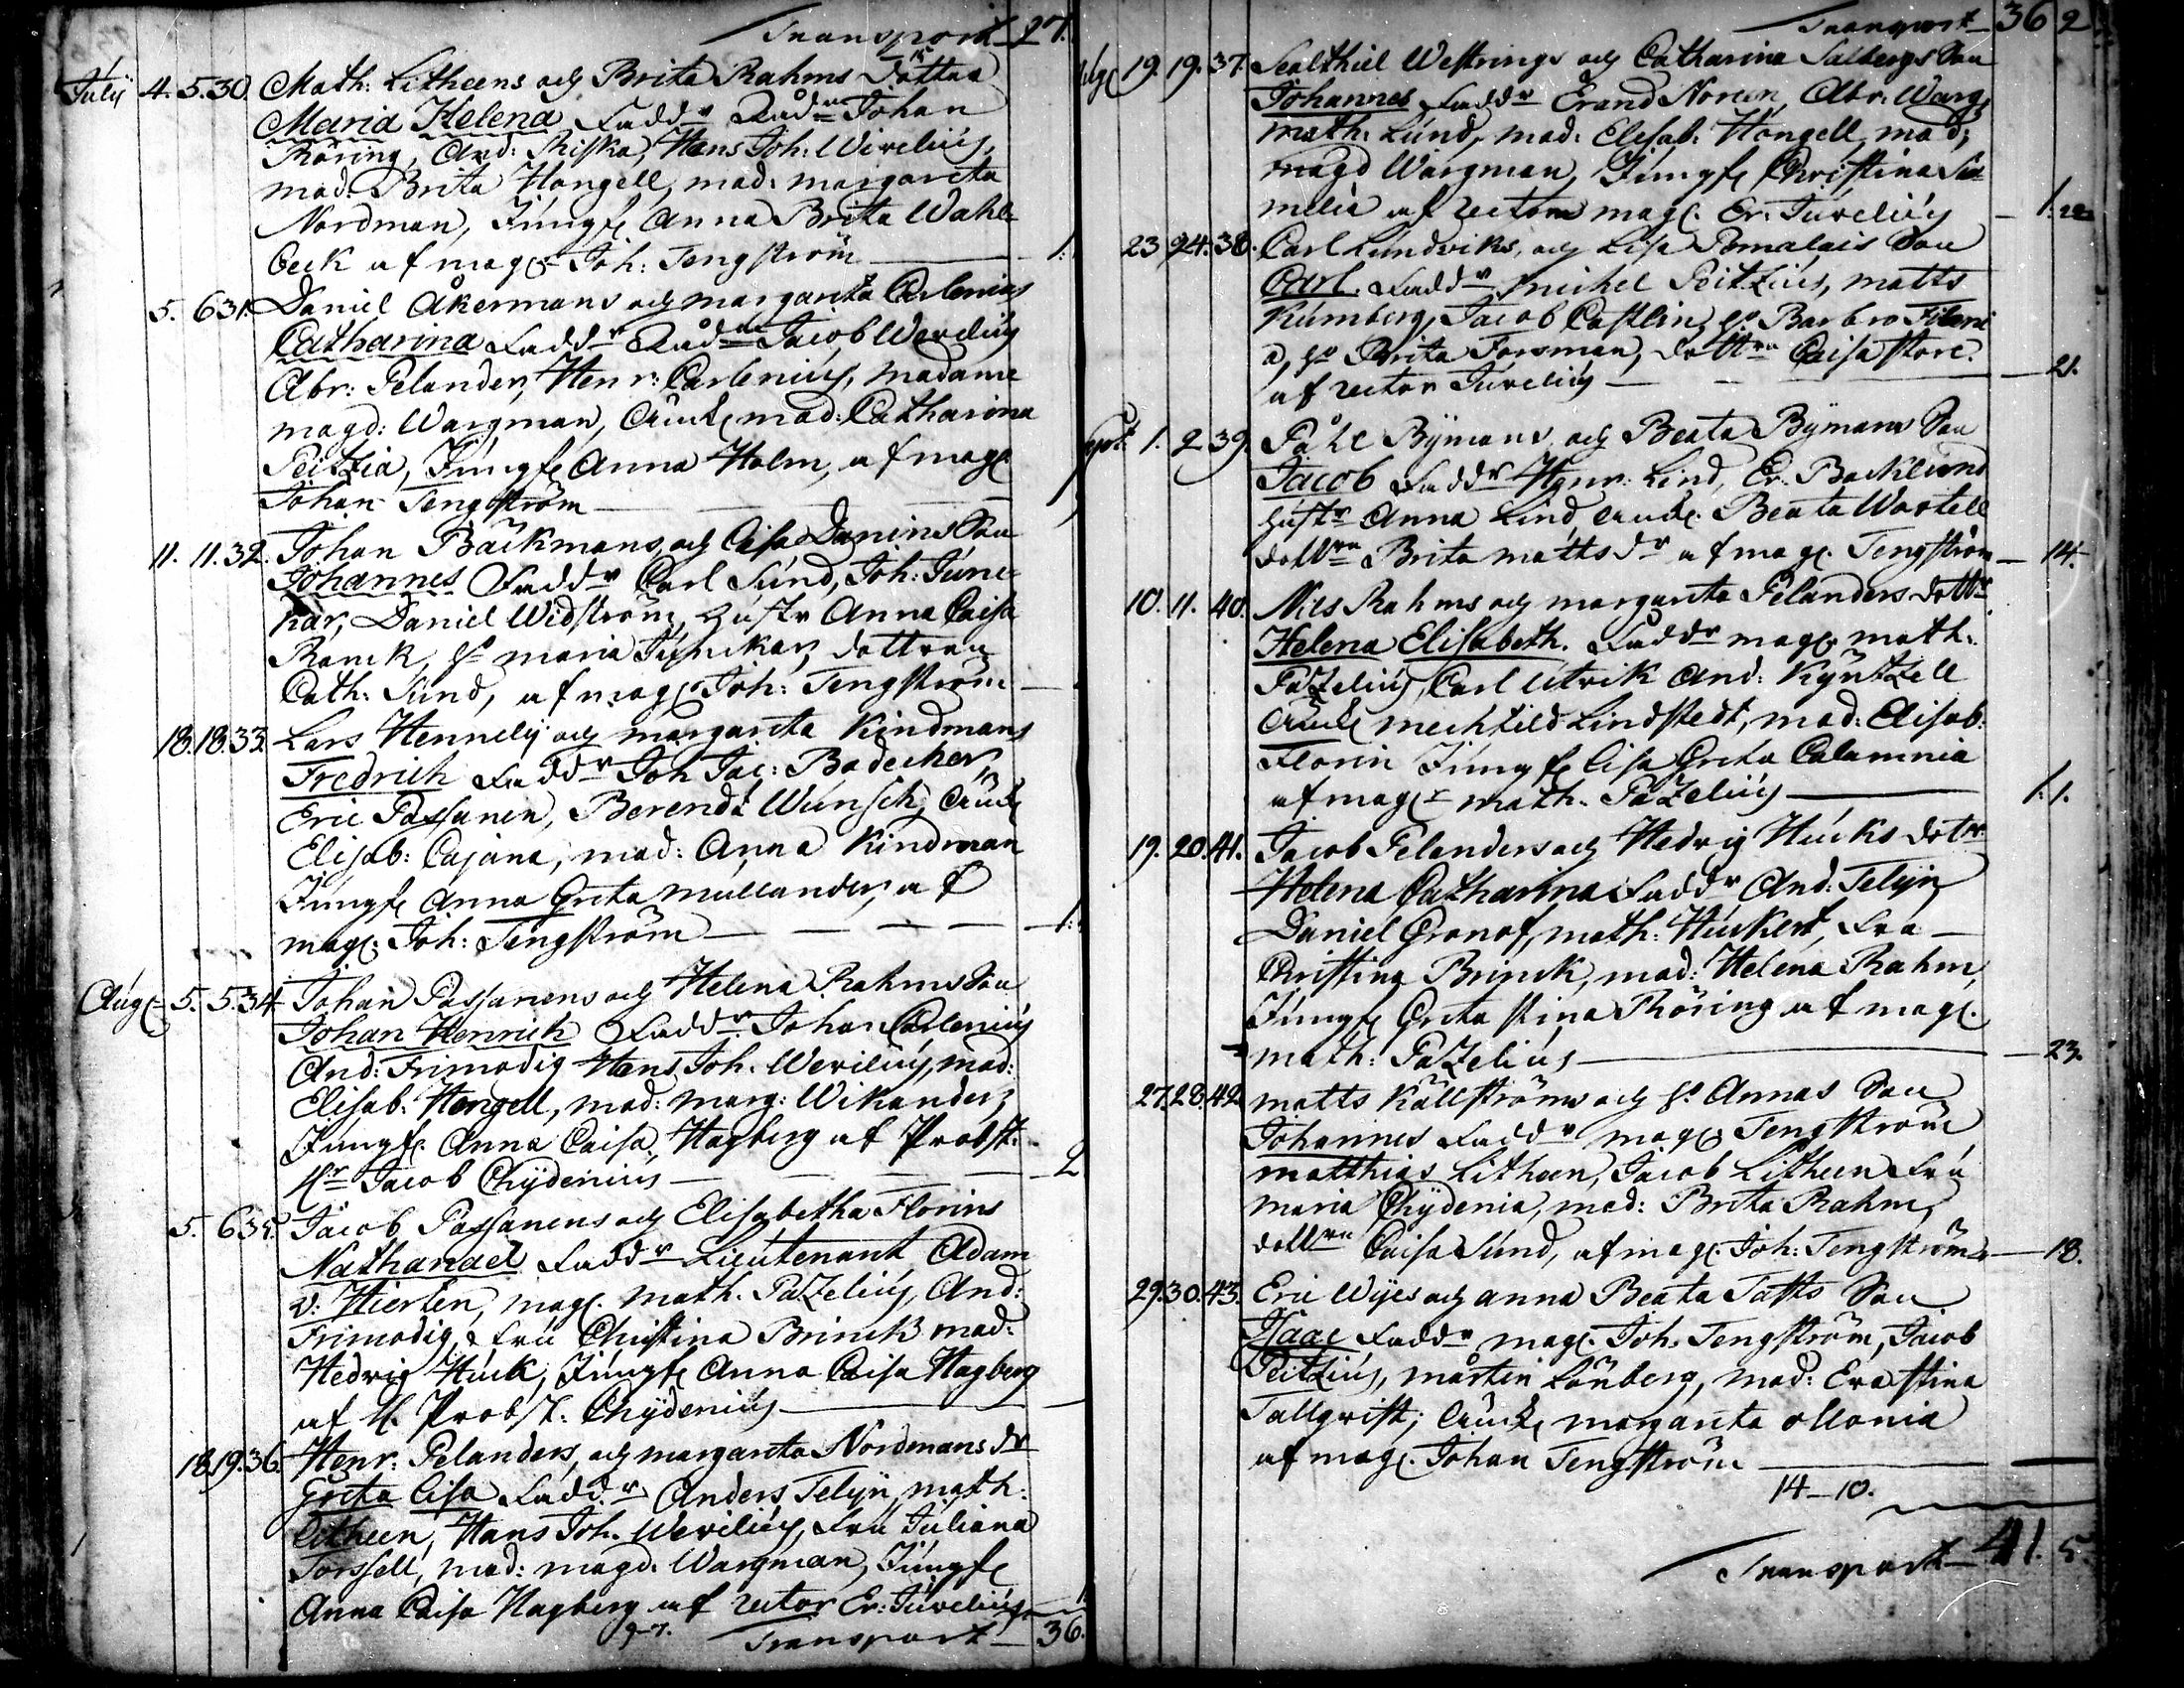 Transport 27.
July 4. 5. 30. Math: Litheens och Brita Rahms Dotter
Maria Helena Faddr Rådm Johan
Röring, And: Riska, Hans Joh: Wirelius,
mad: Brita Hongell, mad: margareta
Nordman, Jungfr Anna Brita Wahl-
beck af magr Joh: Tengström — 1:
5. 6 31. Daniel Åkermans och margareta Carlenius
Catharina Faddr Rådm Jacob Werelius
Abr: Pelander, Henr: Carlenius, madame
magd: Wargman, mad: Catharina
Peitzia, Jungfr Anna Holm, af magr
Johan Tengström —
11. 11. 32. Johan Bäckmans, och Caisa Danins Son
Johannes Faddr Carl Sund, Joh: June-
kar, Daniel Widström, hustr Anna Caisa
Ranck, hs maria Junckar, dottren
Cath: Sund, af magr Joh: Tengström —
18. 18. 33. Lars Hennely och margareta Kindmans
Fredrich Faddr Joh Jac: Badecker,
Eric Passanen, Berendt Wunsch,
Elisab: Cajana, mad: Anna Kindman
Jungfr Anna Greta mullander, af
magr. Joh: Tengström — 1:
Augr 5. 5. 34. Johan Passanens och Helena Rahms Son
Johan Henrich Faddr Johan Carlenius
And: Frimodig Hans Joh. Werilius, mad:
Elisab: Hongell, mad: marg: Wikander,
Jungfr. Anna Caisa Hagberg af Probst:
Hr Jacob Chydenius — 2
5. 6 35. Jacob Passanens och Elisabetha Florins
Nathanael Faddr Lieutenant Adam
v: Hierten, magr. math. Pazelius, And:
Frimodig, Fru Christina Brinck mad:
Hedvig Huck, Jungfr Anna Caisa Hagberg
af H. Probst: Chydenius —
18. 19. 36. Henr: Pelanders, och margareta Nordmans dr
Greta Cisa Faddr Anders Telyn, math:
Litheen, Hans Joh. Werilius, Fru Juliana
Forssell, mad: magd. Wargman, Jungfr
Anna Caisa Hagberg af rector Er: Juvelius
9-7. Transport — 36.
Transport — 36 2
Augr 19. 19. 37. Sealthiel Westrings och Catharina Salbergs Son
Johannes Faddr Erand Noreen, Abr: Warg,
math: Lund, mad: Elisab: Hongell, mad:
magd Wargman, Jungfr Christina
af rectorn magr. Er: Juvelius —
23 24. 38. Carl Lundviks, och Lisa Pomalais Son
Carl. Faddr michel Peitzius, matts
Kumberg, Jacob Castlin, hs Barbro
a, hs Brita Forsman, dottren Caisa Store.
af rector Juvelius — 21.
Sept: 1. 2 39. Påhl Bymans och Beata Bymans Son
Jacob Faddr Henr: Lind, Er: Backlund
hustr Anna Lind Beata Wartell
dottren Brita matts dr af magr. Tengström — 14.
10. 11. 40. Nils Rahms och margareta Pelanders dottr
Helena Elisabeth. Faddr magr math:
Pazelius, Carl Utrik And: Kyntzell
mechtild Lindstedt, mad: Elisab:
Florin Jungfr Cisa Greta Calamnia
af magr math. Pazelius — 1. 1.
19. 20. 41. Jacob Pelanders och Hedvig Hucks dotr
Helena Catharina Faddr And: Telyn
Daniel Granof, math: Huckert, Fru
Christina Brinck, mad: Helena Rahm,
Jungfr Greta Stina Röring af magr.
math: Pazelius — 23.
27. 28. 42. matts Källströms och hs. Annas Son
Johannes Faddr magr Tengström
matthias Litheen, Jacob Litheen Fru
maria Chydenia, mad: Brita Rahm,
dottren Caisa Sund, af magr. Joh: Tengström — 18.
29. 30. 43. Eric Wijes och anna Beata Tafts Son
Isaac Faddr magr. Joh: Tengström, Jacob
Peitzius, mårtin Lönberg, mad: Eva Stina
Tallqvist, margareta ollonia
af magr. Johan Tengström —
14-10.
Transport — 41. 5.